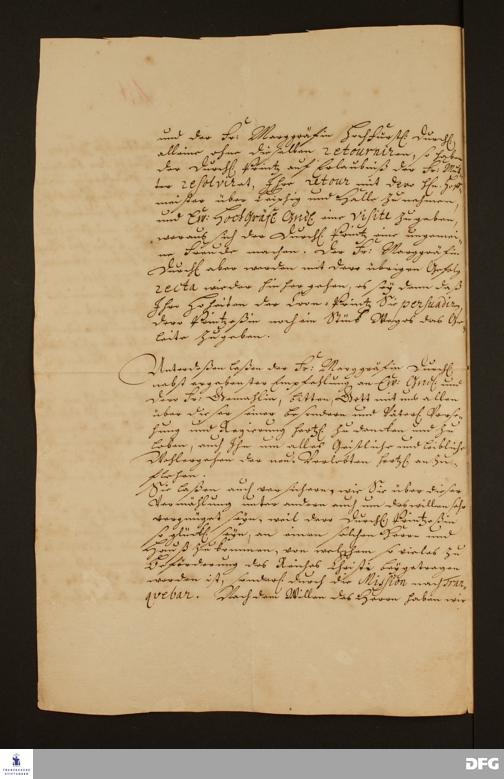 und der Fr: Marggräfin Hochfürstl. Durchl.
alleine ohne dieselben retourniren, so haben
der Durchl. Printz auf Erlaubniß der Fr. Mut-
ter resolviret, Ihre retour mit dero Hn. Hoff-
meister über Leipzig und Halle zu nehmen,
und Ew: HochGräfl. Gnd. eine Visite zu geben,
woraus sich der Durchl. Printz eine ungemei-
ne Freude machen. Der Fr: Marggräfin
Durchl. aber werden mit dero übrigen Gefolg
recta wieder hieher gehen, es sey denn daß
Ihro Hoheiten der Cron-Printz Sie persuadiren
dero Printzeßin noch ein Stück Weges das Ge-
leite zu geben.
Unterdeßen laßen der Fr: Marggräfin Durchl.
nebst ergebenster Empfehlung an Ew: Gnd. und
dero Fr: Gemahlin, bitten, Gott mit uns allen
über dieser seiner besondern und Väterl. Verse-
hung und Regierung hertzl. zu dancken und zu
loben, auch Ihn um alles Geistliche und leibliche
Wohlergehen der neuen Verlobten hertzl. an zu-
flehen.
Sie laßen auch versichern, wie Sie über dieser
Vermählung unter andern auch um des willen sehr
vergnügt seyn, weil dero Durchl. Printzeßin
so glückl. seyn, an einen solchen Herrn und
Hauß zu kommen, von welchem so vieles zu
Beförderung des Reiches Christi beygetragen
worden ist, sonderl. durch die Mission nach Tran-
quebar. Nach dem Willen des Herrn haben wir
FRANCKESCHE
STIFTUNGEN
DFG